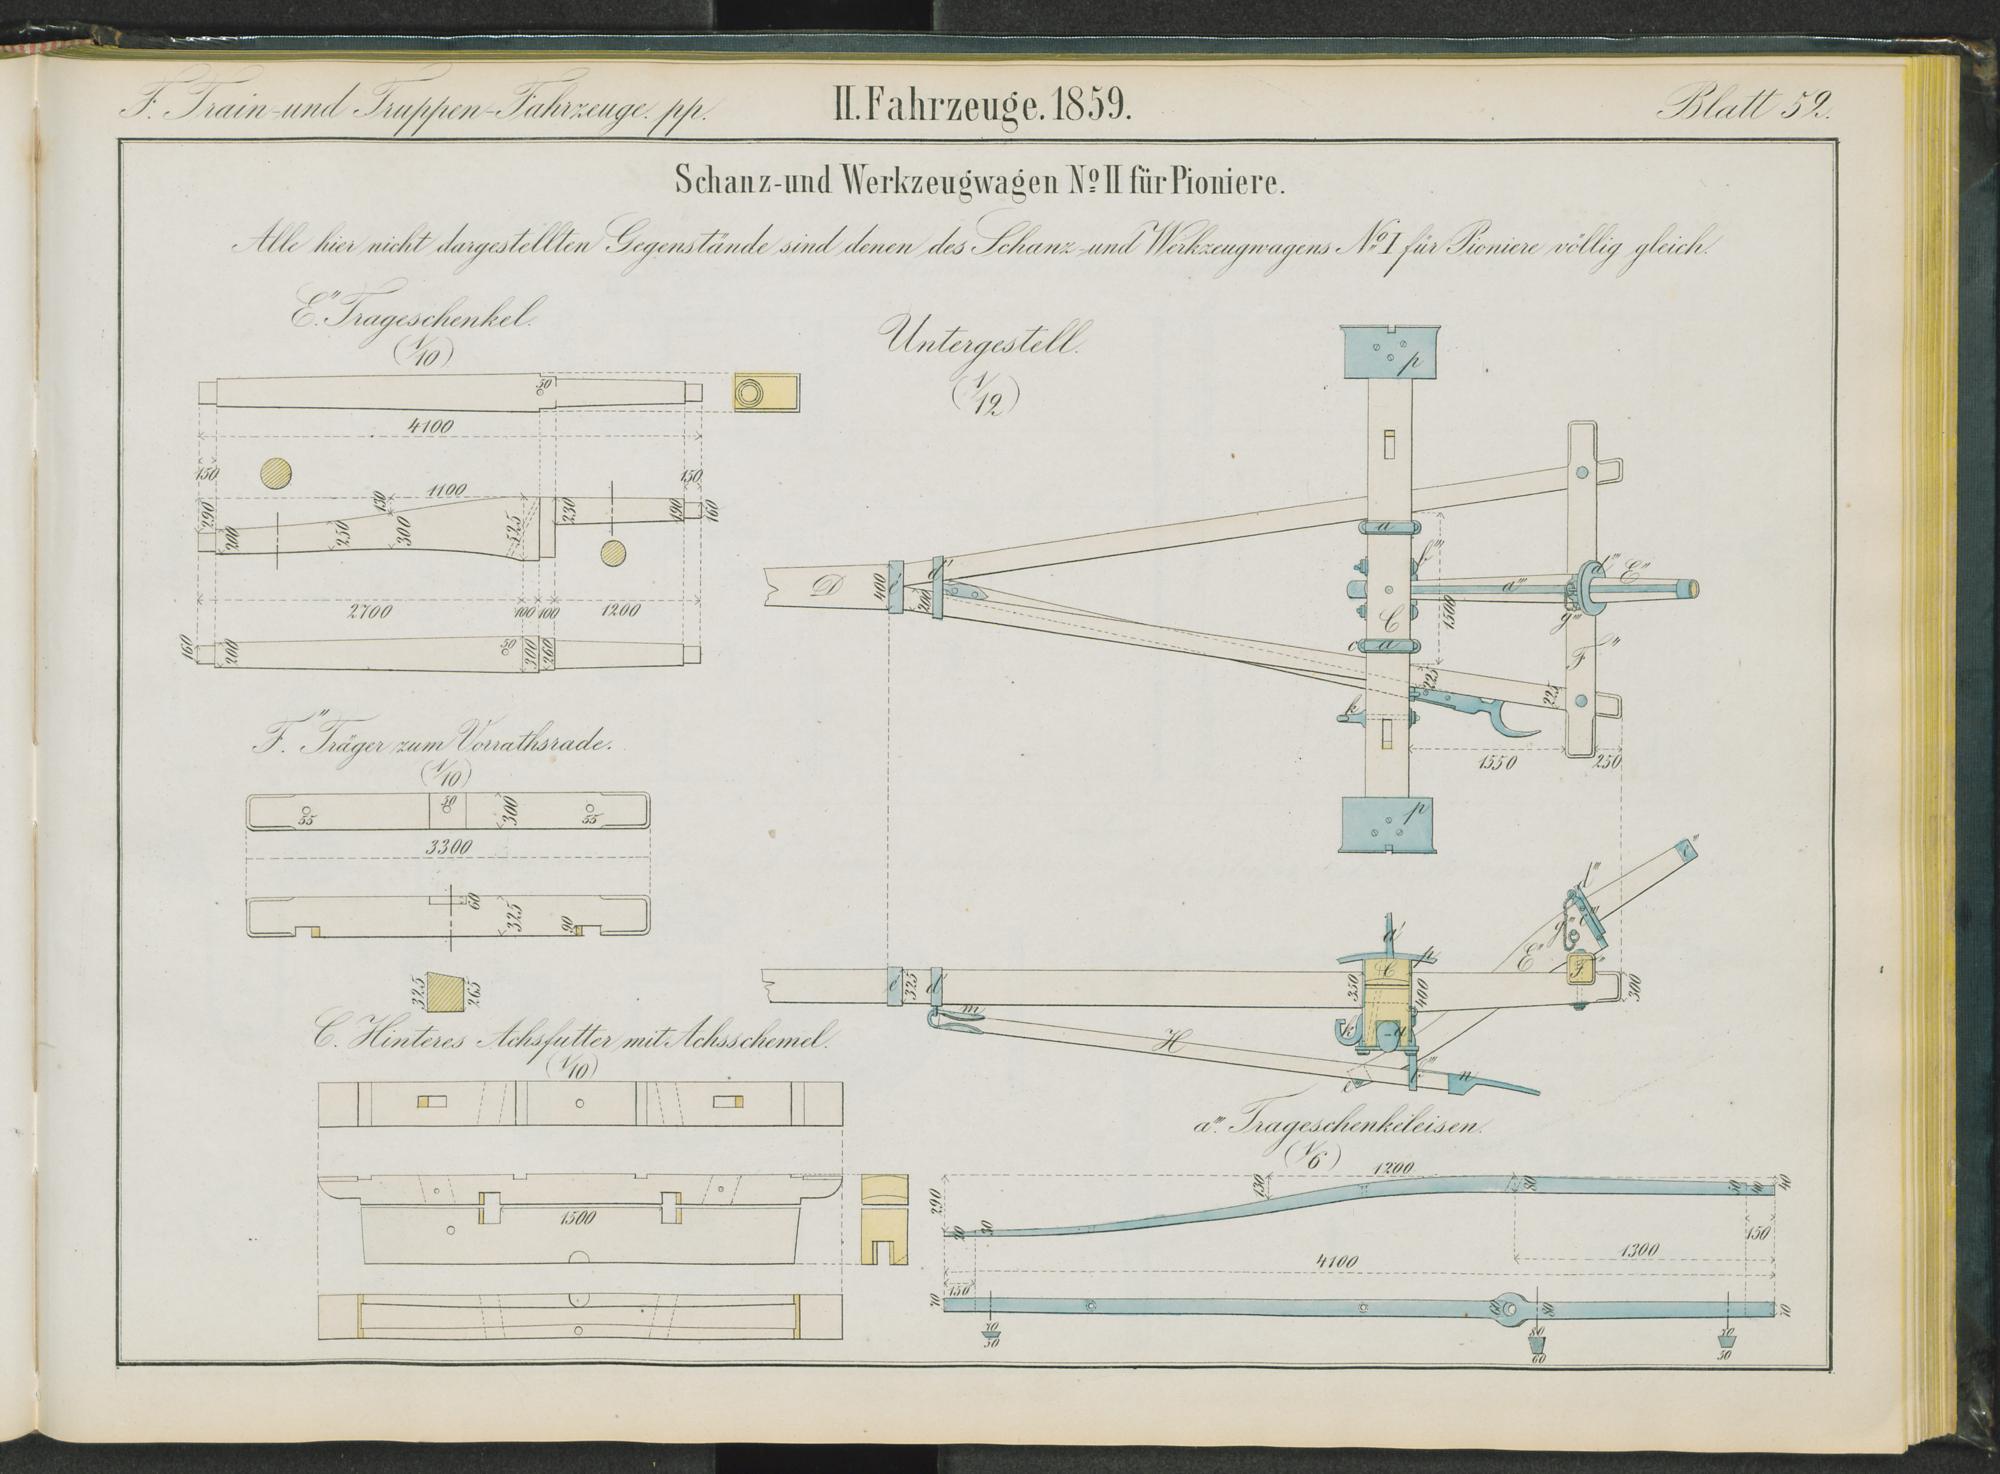 F. Train- und Truppen-Fahrzeuge. pp.
II. Fahrzeuge. 1859.
Blatt 52.
Schanz- und Werkzeugwagen No II für Pioniere.
Alle hier nicht dargestellten Gegenstände sind denen des Schanz- und Werkzeugwagens No I für Pioniere völlig gleich.
E". Trageschenkel.
(1/10)
50
4100
150
1100
150
290
200
250
130
300
525
230
190
160
2700
100
100
1200
160
200
50
300
260
F." Träger zum Vorrathsrade.
(1/10)
55
50
300
55
3300
60
325
90
325
265
C. Hinteres Achsfutter mit Achsschemel.
(1/10)
1500
Untergestell.
(1/12)
p
a
D
400
e'
d'
200
f'''
C
a'''
d'''
E''
g'''
1500
c
a
F''
k
225
225
1550
250
p
e'''
d'''
c'''
g'''
a'
p
C
E''
F''
e'
325
d'
350
400
300
m
k
q
H
e'''
n
a'''. Trageschenkeleisen.
(1/6)
1200
290
130
80
50
40
40
20
30
150
1300
4100
150
70
60
80
70
70
50
80
60
70
50